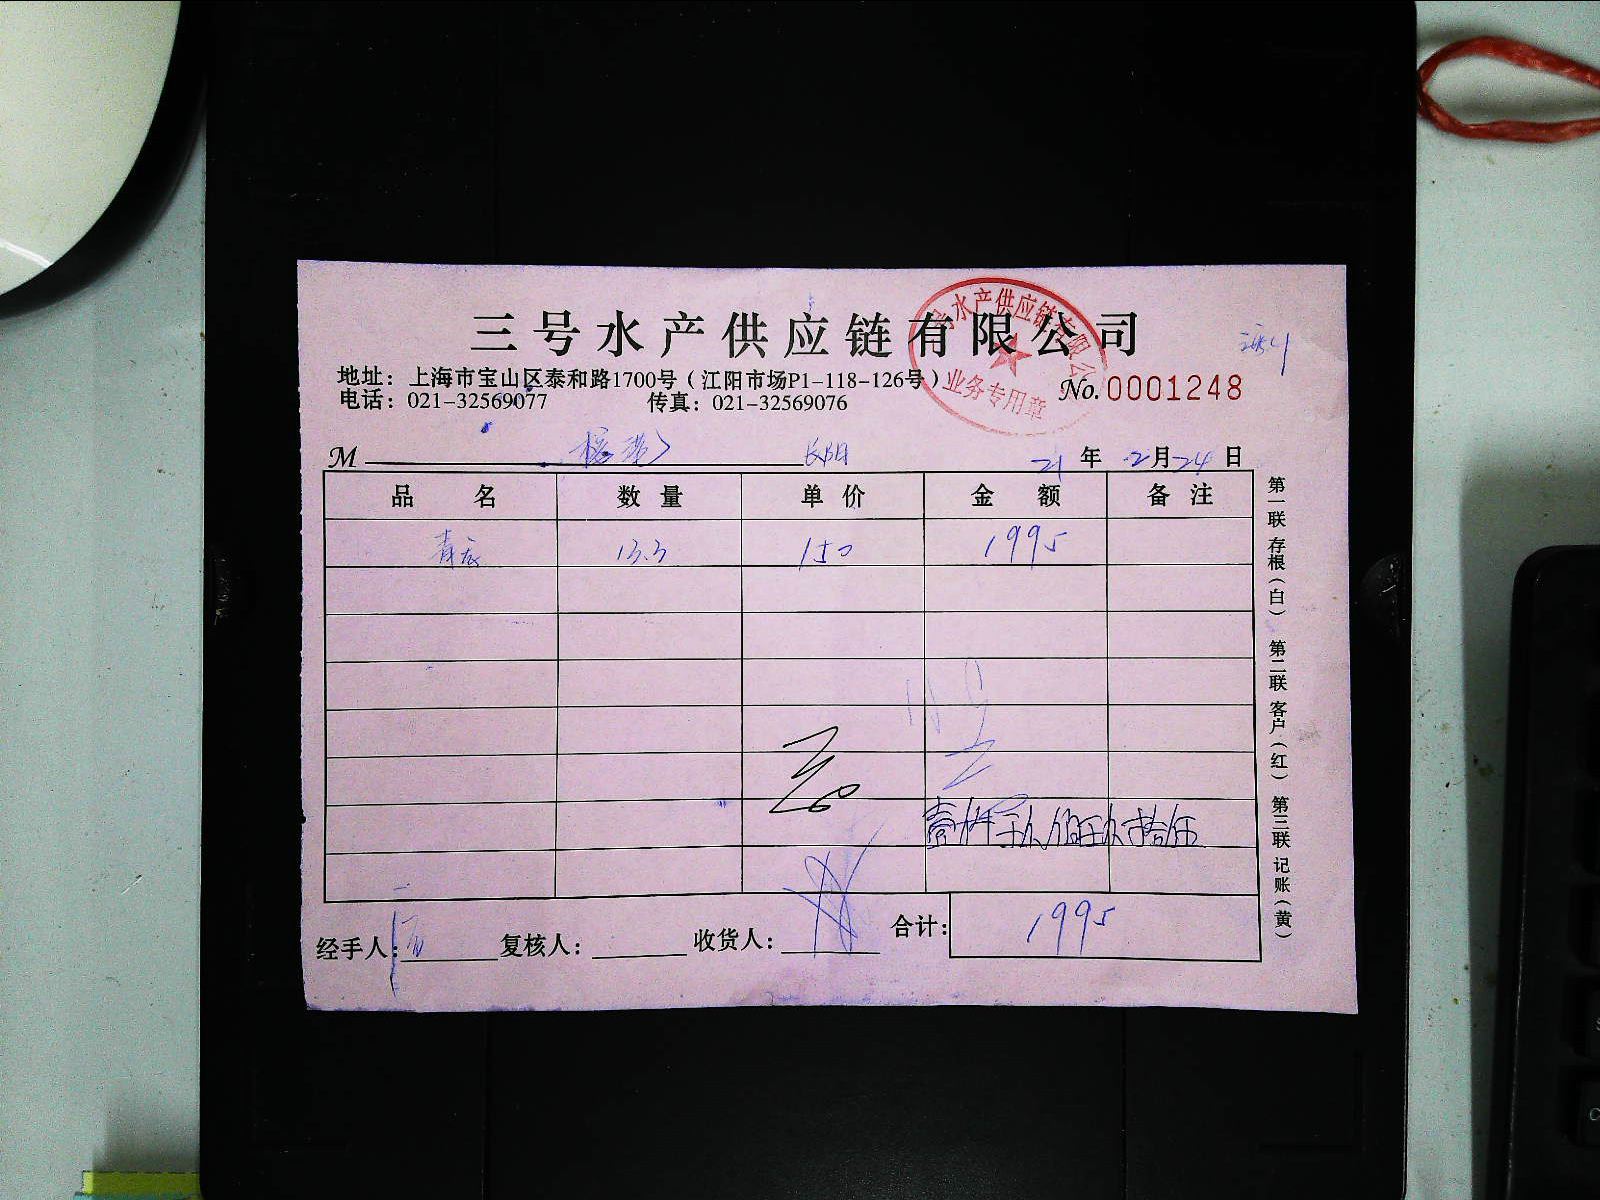 三号水产供应链有限公司
号水产供应链有限公
业务专用章
地址：上海市宝山区泰和路1700号（江阳市场P1-118-126号）
No.0001248
电话：021-32569077 传真：021-32569076
M 长阳 21年 12月24日
品名 数量 单价 金额 备注
13.3 150 1995
壹仟玖佰玖拾伍
经手人： 复核人： 收货人： 合计：1995
第一联 存根（白） 第二联 客户（红） 第三联 记账（黄）